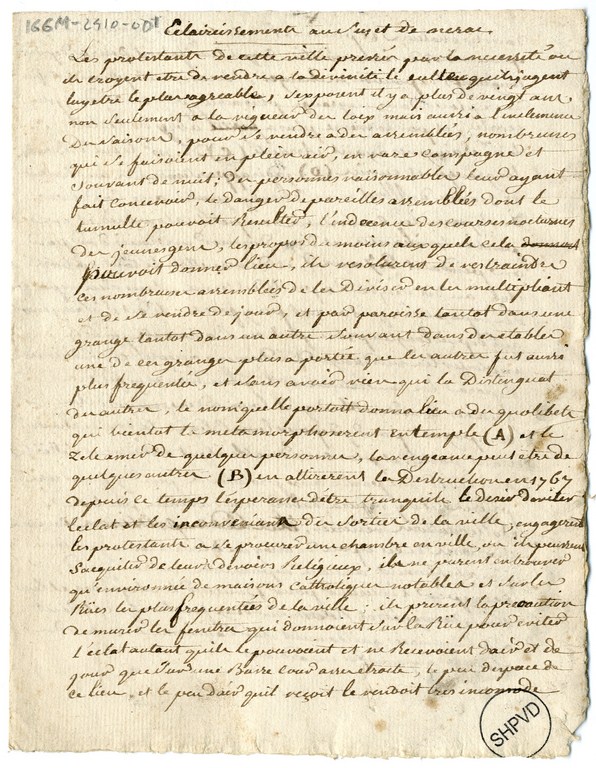 166M-2910-001
Eclaircissements au Sujet de nerac
Les protestants de cette ville pressés par la necessité ou
ils croyent etre de rendre a la divinité le culte qu'ils jugent
luy etre le plus agreable, s'exposent il y a plus de vingt ans
non seulement a la rigueur des loix mais aussi a l'inclemence
Des Saisons, pour se rendre a des assemblées, nombreuses
qui se faisoient en plein air, en rare campagne et
souvant de nuit; des personnes raisonnables leur ayant
fait concevoir, le danger de pareilles assemblées dont le
tumulte pouvoit Resulter, l'indecence des courses nocturnes
des jeunes gens, les propos du moins aux quels cela
pouvoit donner lieu, ils resolurent de restraindre
ces nombreuses assemblées de les Diviser en les multipliant
et de se rendre de jour, et par paroisse tantot dans une
grange tantot dans un autre souvant dans des etables
une de ces granges plus a portée que les autres fut aussi
plus frequentée, et sans avoir rien qui la Distinguat
des autres, le nom qu'elle portoit donna lieu a des quolibets
qui bientot la metamorphoserent en temple (A) et le
Zele amer de quelques personnes, la vengeance peut etre de
quelques autres (B) en attirerent la Destruction en 1767
depuis ce temps l'esperance d'etre tranquile le desir d'eviter
l'eclat et les inconveniants du sortir de la ville, engagerent
les protestants a se procurer une chambre en ville, ou ils pussent
s'acquiter de leurs devoirs Religieux, ils ne purent en trouver
qu'environnée de maisons Catholiques notables et sur les
Rües les plus frequentées de la ville; ils prirent la precaution
de murer les fenetres qui donnoient sur la Rüe pour eviter
L'eclat autant qu'ils le pouvoient et ne Recevoient d'air et de
jour que sur une Basse cour assés etroite, le peu d'espace de
ce lieu, et le peu d'air qu'il reçoit le rendoit tres incomode
SHPVD